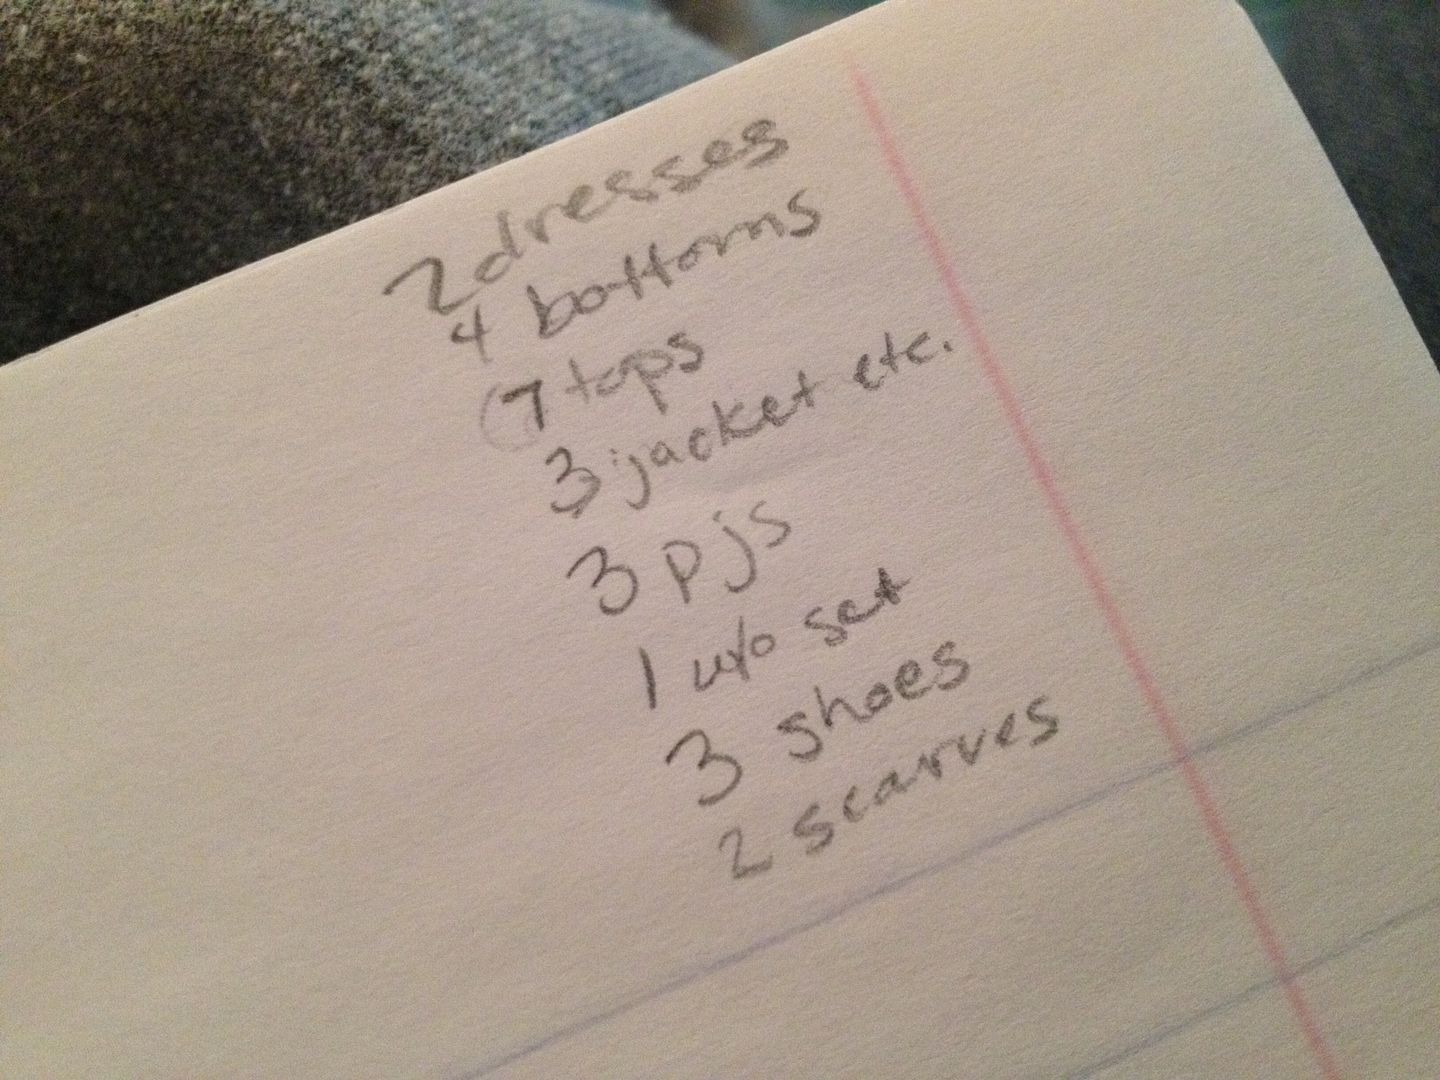 2 dresses
4 bottoms
7 tops
3 jacket etc.
3 pjs
1 w/o set
3 shoes
2 scarves